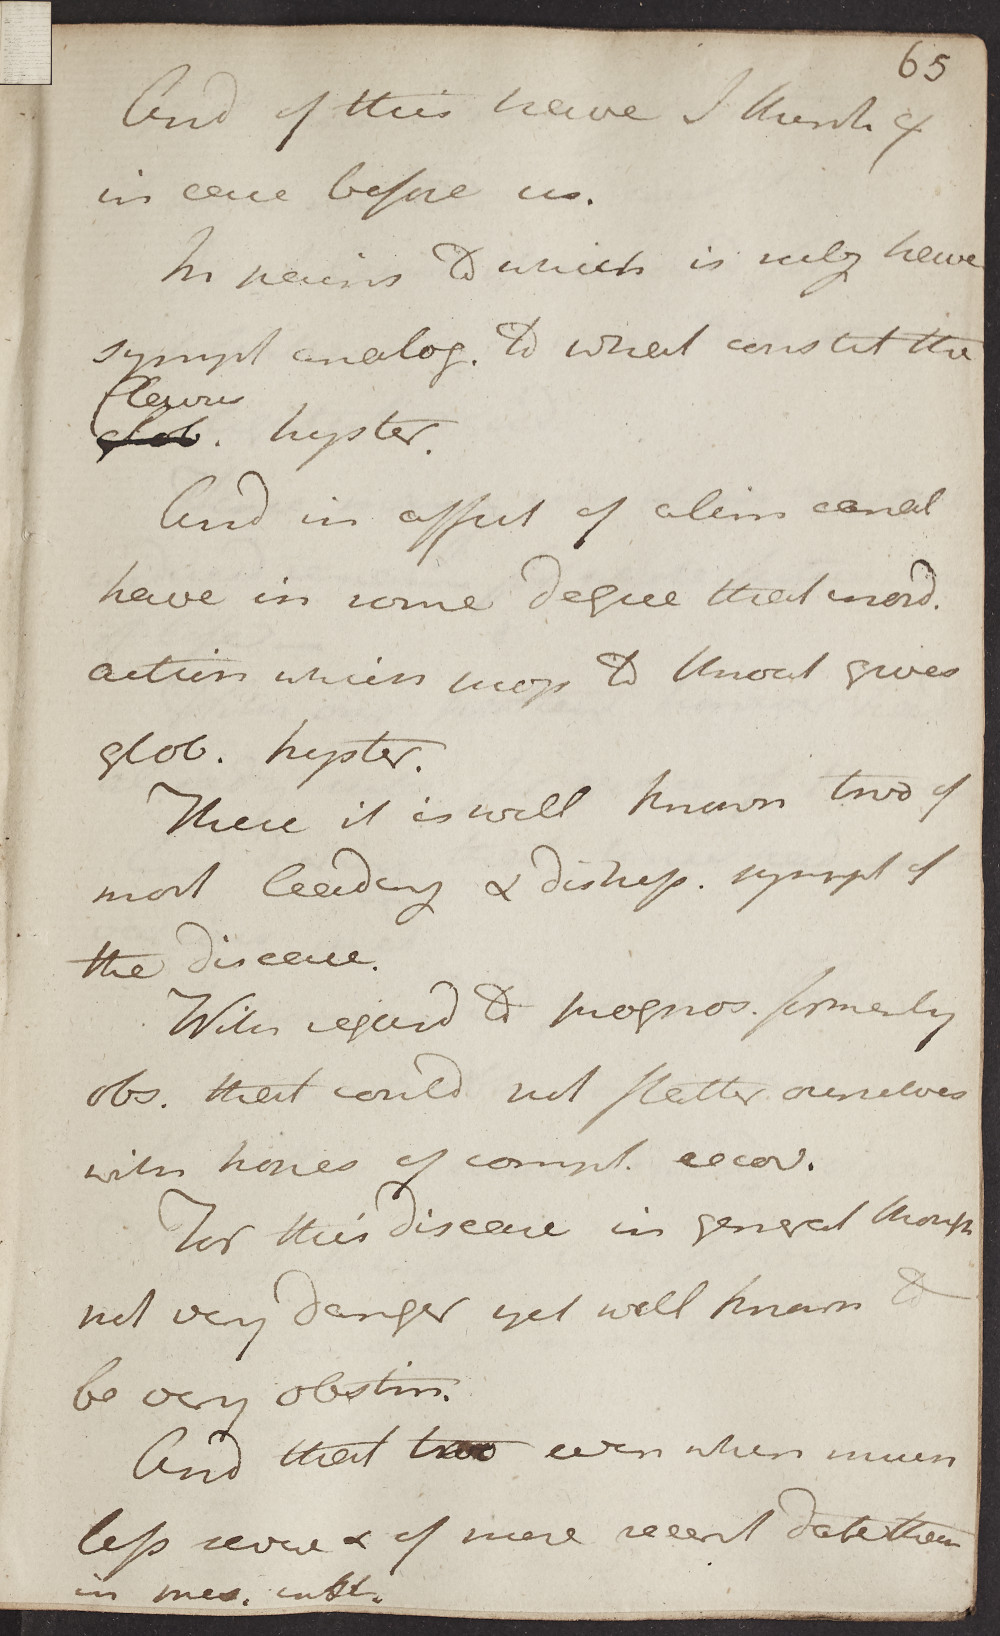 65
And of this have I think ex
in case before us.
In pains to which is subj have
sympt analog. to what constit the
Clavus
glob. hyster.
And in affect of alim canal
have in some degree that mord.
action which prop to throat gives
glob. hyster.
These it is well known two of
most leading & disting. sympt of
the disease.
With regard to prognos. formerly
obs. that could not flatter ourselves
with hopes of compl. recov.
For this disease in general though
not very danger yet well known to
be very obstin.
And that too even when much
less severe & of more recent date than
in pres. inst.